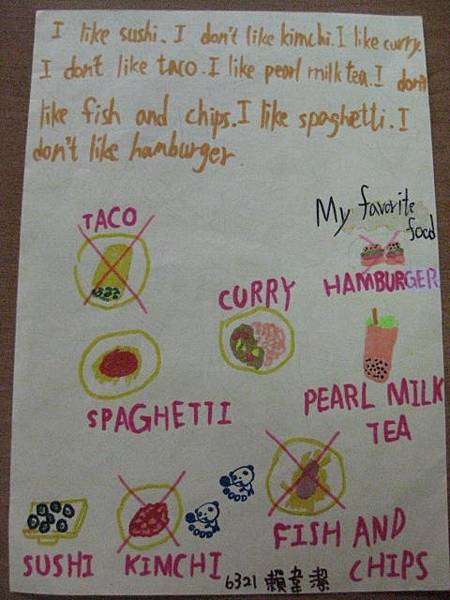 I like sushi. I don't like kimchi. I like curry.
I don't like taco. I like pearl milk tea. I don't
like fish and chips. I like spaghetti. I
don't like hamburger.
My favorite
food
TACO
HAMBURGER
CURRY
SPAGHETTI
PEARL MILK
TEA
GOOD
GOOD
FISH AND
CHIPS
SUSHI
KIMCHI
6321 賴韋潔